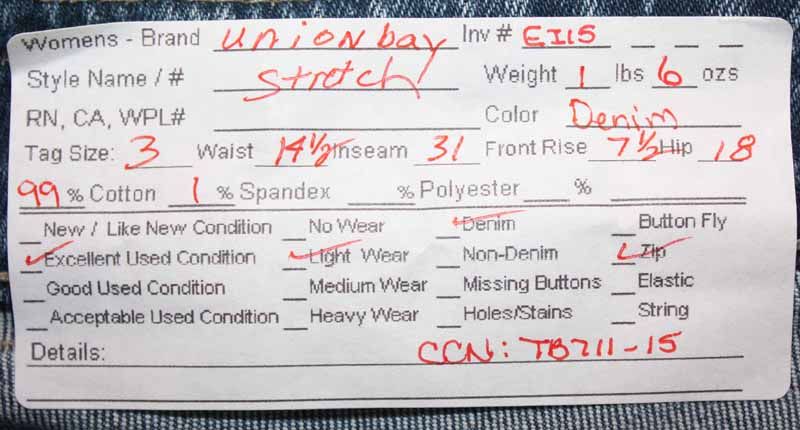 Womens - Brand unionbay Inv # EI15
Style Name / # Stretch
Weight 1 lbs 6 ozs
RN, CA, WPL# Color Denim
Tag Size: 3 Waist 14 1/2 Inseam 31 Front Rise 7 1/2 Hip 18
99 % Cotton 1 % Spandex % Polyester %
New / Like New Condition No Wear Denim Button Fly
Excellent Used Condition Light Wear Non-Denim Zip
Good Used Condition Medium Wear Missing Buttons Elastic
Acceptable Used Condition Heavy Wear Holes/Stains String
Details: CCN: TB711-15